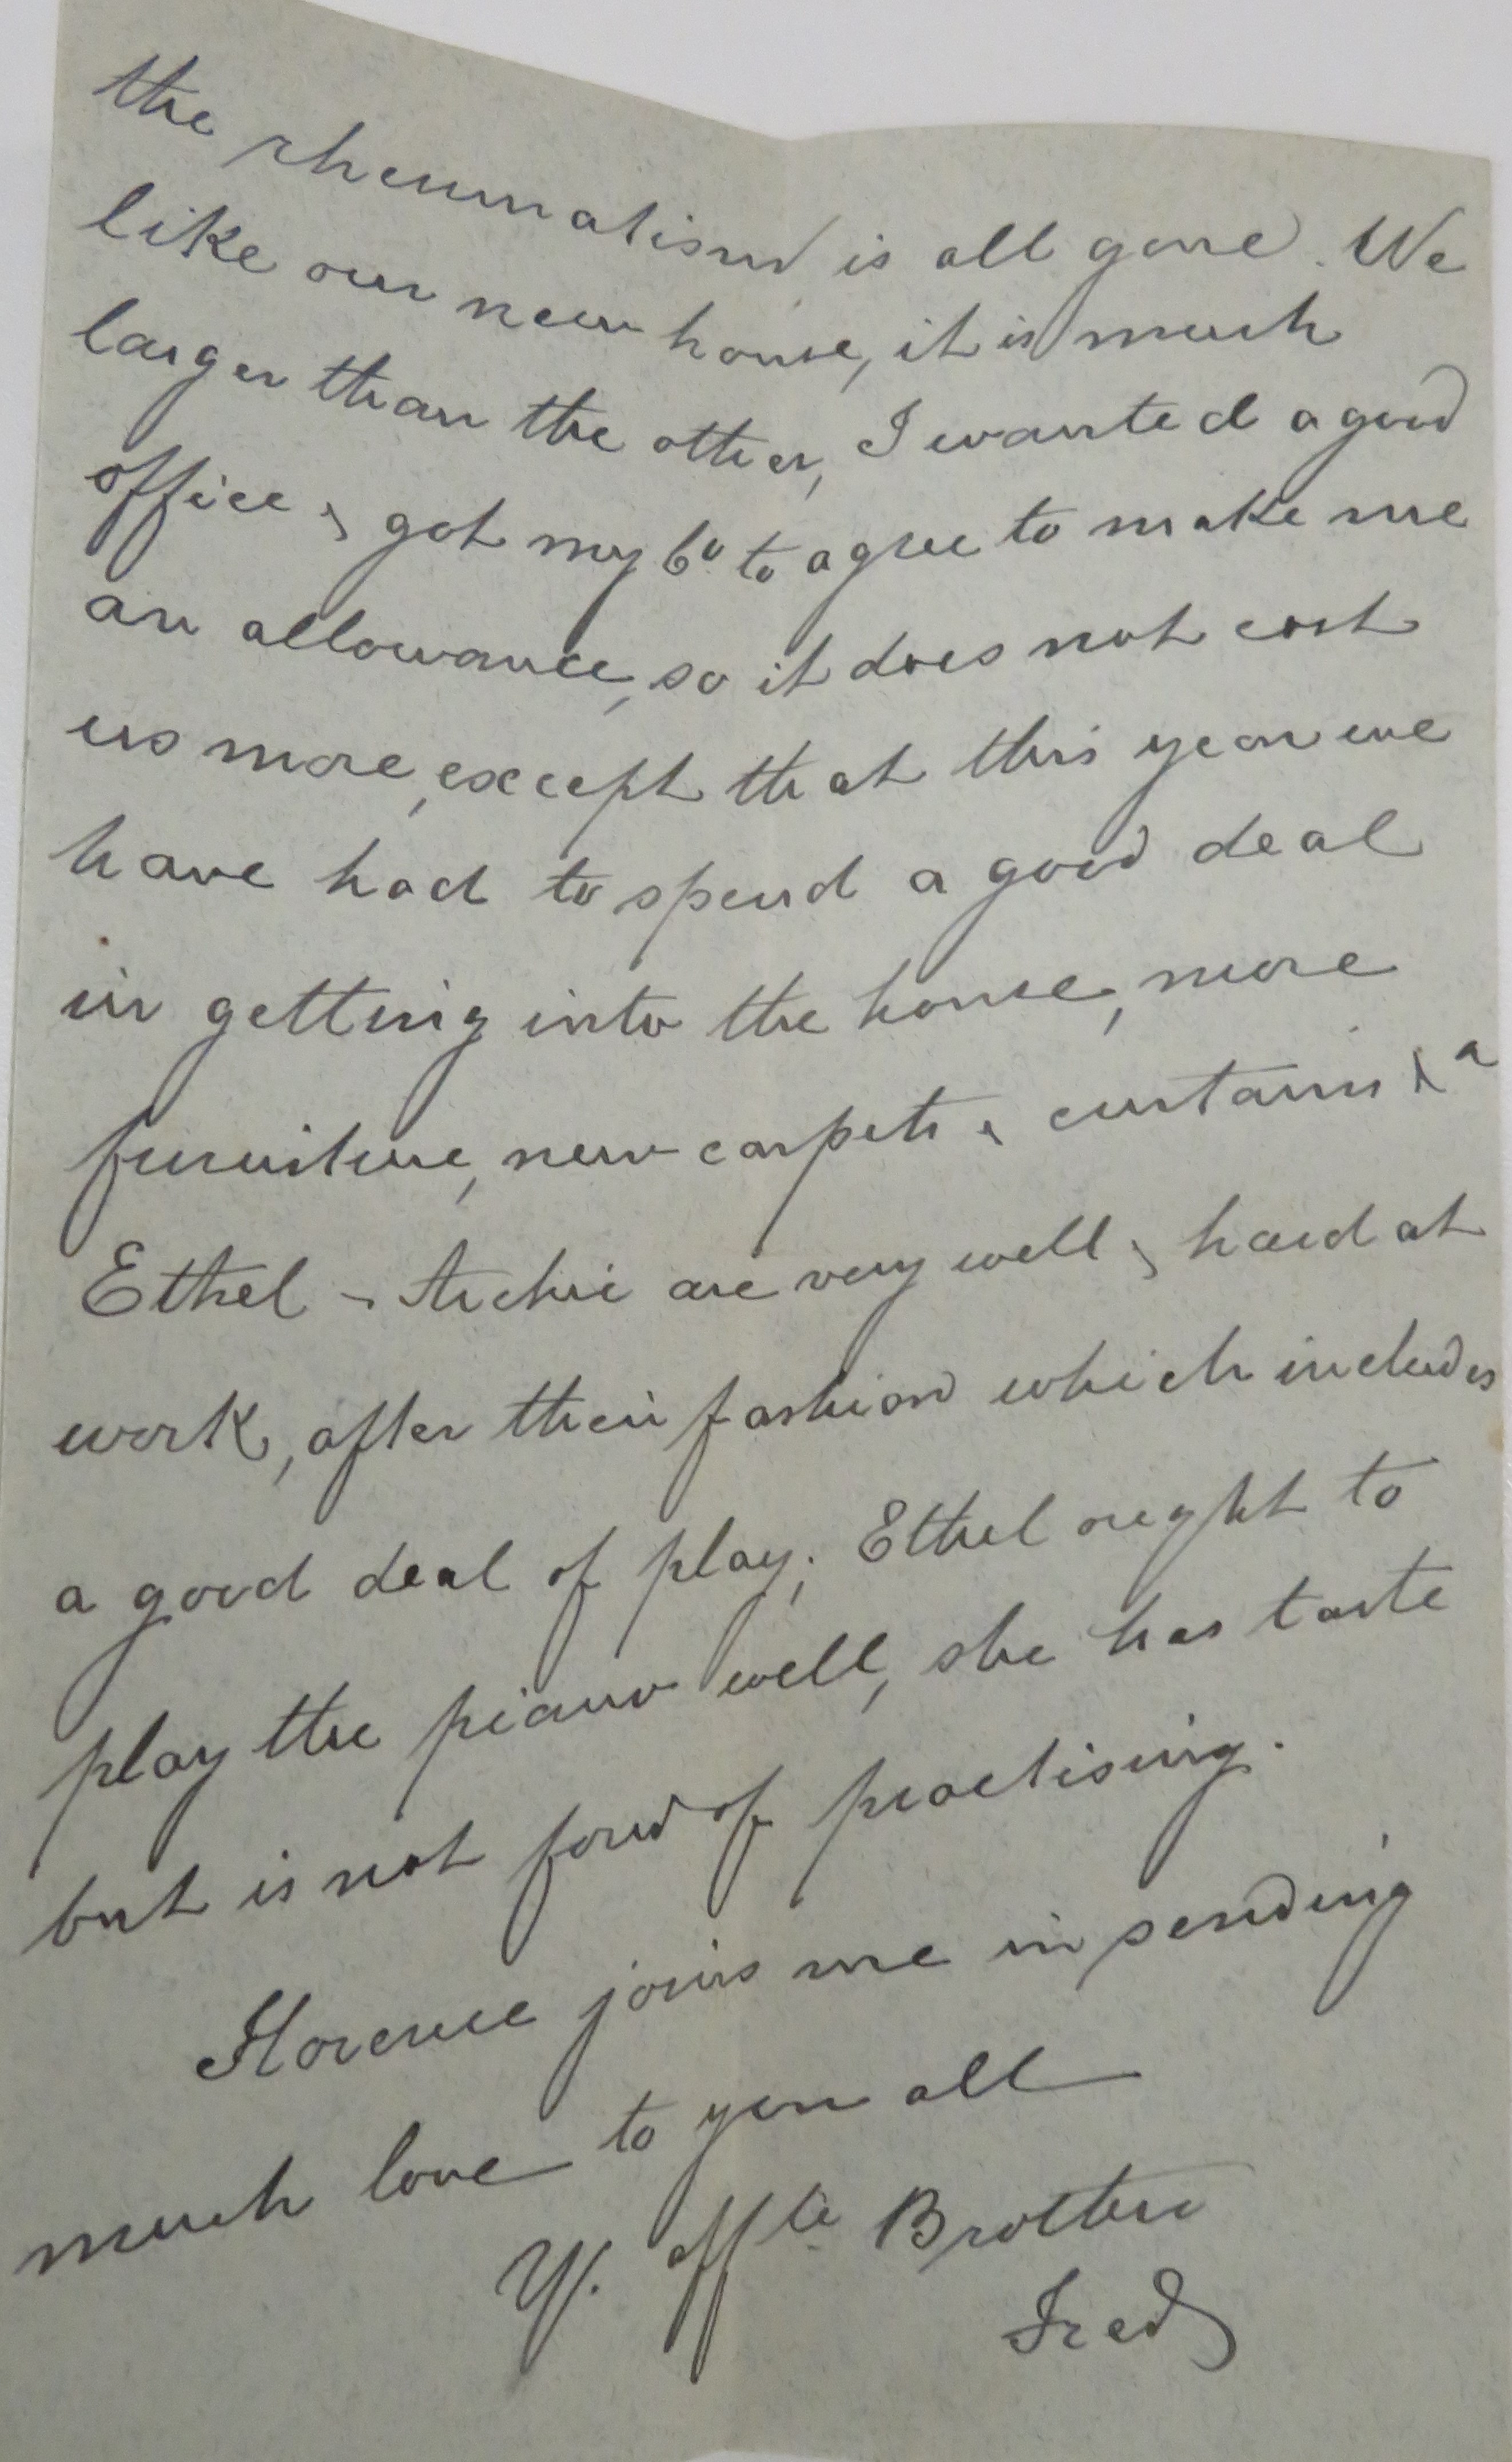 the rheumatism is all gone. We
like our new house, it is much
larger than the other, I wanted a good
office & got my Co. to agree to make me
an allowance, so it does not cost
us more, except that this year we
have had to spend a good deal
in getting into the house, more
furniture, new carpets & curtains &c
Ethel & Archie are very well & hard at
work, after their fashion which includes
a good deal of play; Ethel ought to
play the piano well, she has taste
but is not fond of practising.
Florence joins me in sending
much love to you all
Yr. affte Brother
Fred